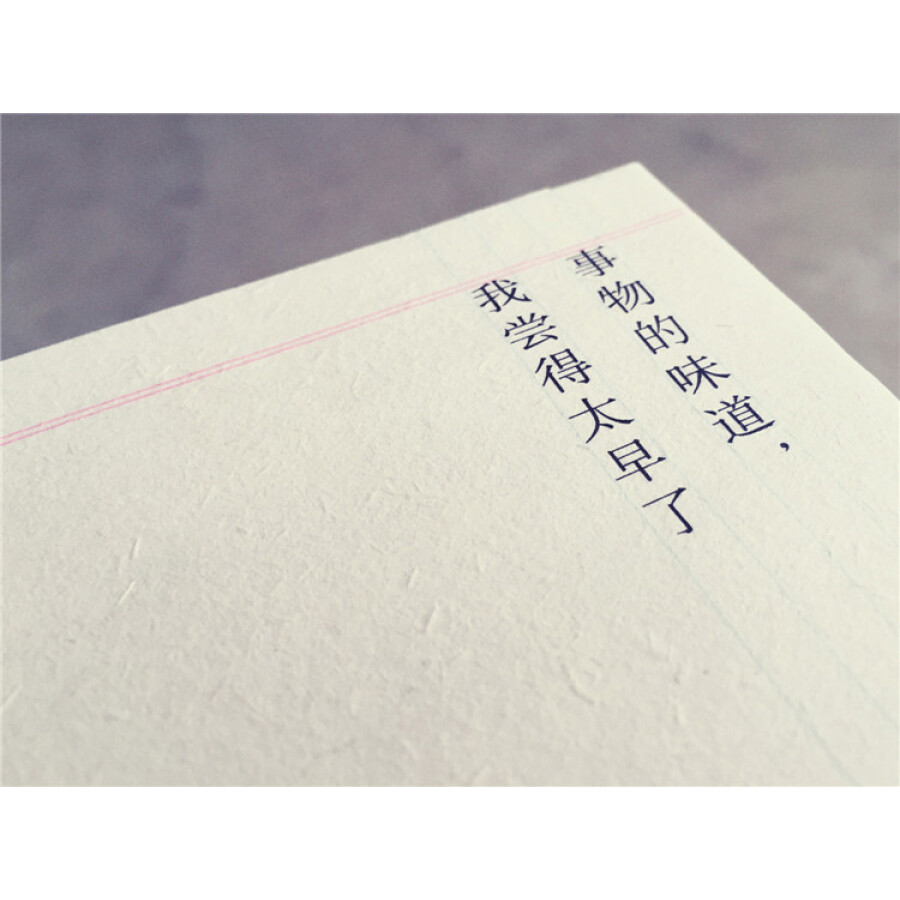 事物的味道，
我尝得太早了